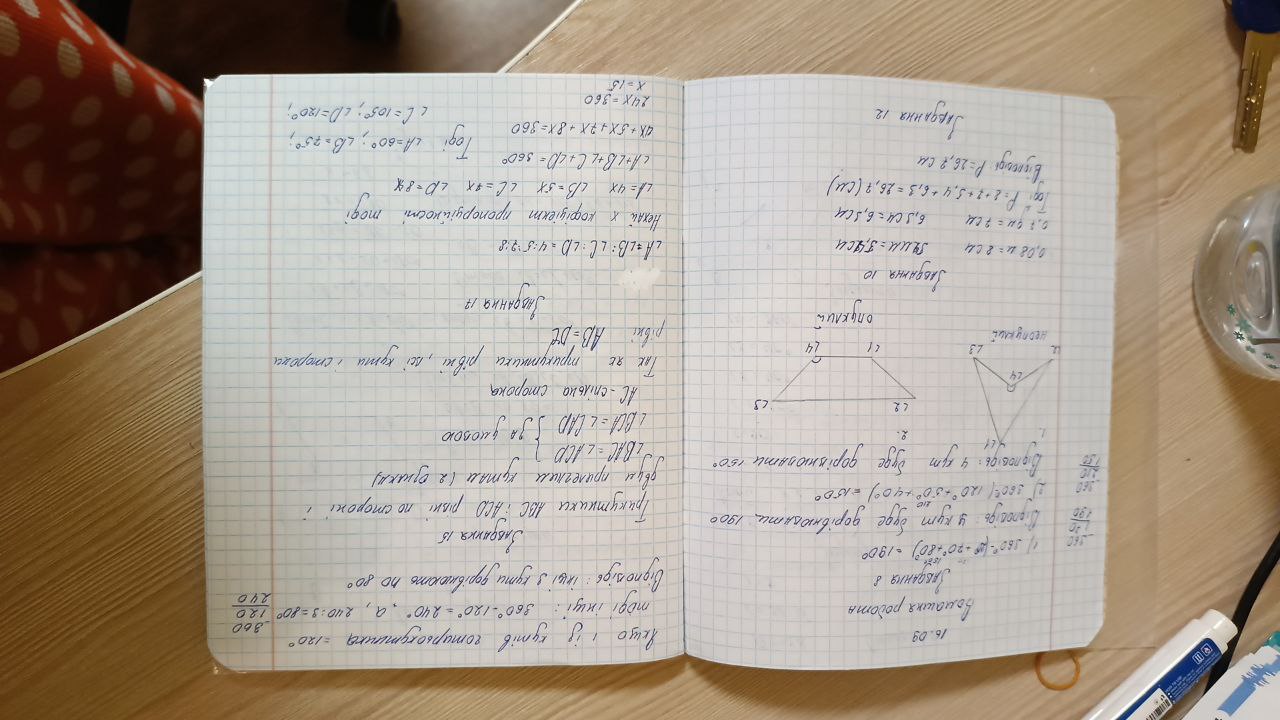 16.09
Домашня робота
Завдання 8
1) 360°-( +70°+80°) = 190°
360
170
190
Відповідь: 4 кут буде дорівнювати 190°
2) 360°-(120°+50°+40°) = 150°
210
360
210
150
Відповідь: 4 кут буде дорівнювати 150°
1.
2.
∠1
∠2
∠3
∠4
неопуклий
∠2
∠3
∠1
∠4
опуклий
Завдання 10
0,08 м = 8 см 54 мм = 5,4 см
0,7 дм = 7 см 6,3 см = 6,3 см
Тоді P = 8+7+5,4+6,3 = 26,7 (см)
Відповідь P = 26,7 см
Завдання 12
Якщо 1 із кутів чотирьохкутника = 120°
тоді інші: 360°-120° = 240°, а, 240:3=80°
360
120
240
Відповідь: інші 3 кути дорівнюють по 80°
Завдання 15
Трикутники ABC і ACD рівні по стороні і
двум прилеглим кутам (2 ознака)
∠BAC = ∠ACD
∠BCA = ∠CAD } за умовою
AC - спільна сторона
Так як трикутники рівні, всі кути і сторони
рівні AB = DC
Завдання 17
∠A:∠B:∠C:∠D = 4:5:7:8
Нехай x коефіцієнт пропорційності тоді
∠A = 4x ∠B = 5x ∠C = 7x ∠D = 8x
∠A+∠B+∠C+∠D = 360°
4x+5x+7x+8x = 360
24x = 360
x = 15
Тоді ∠A=60°; ∠B=75°;
∠C=105°; ∠D=120°;